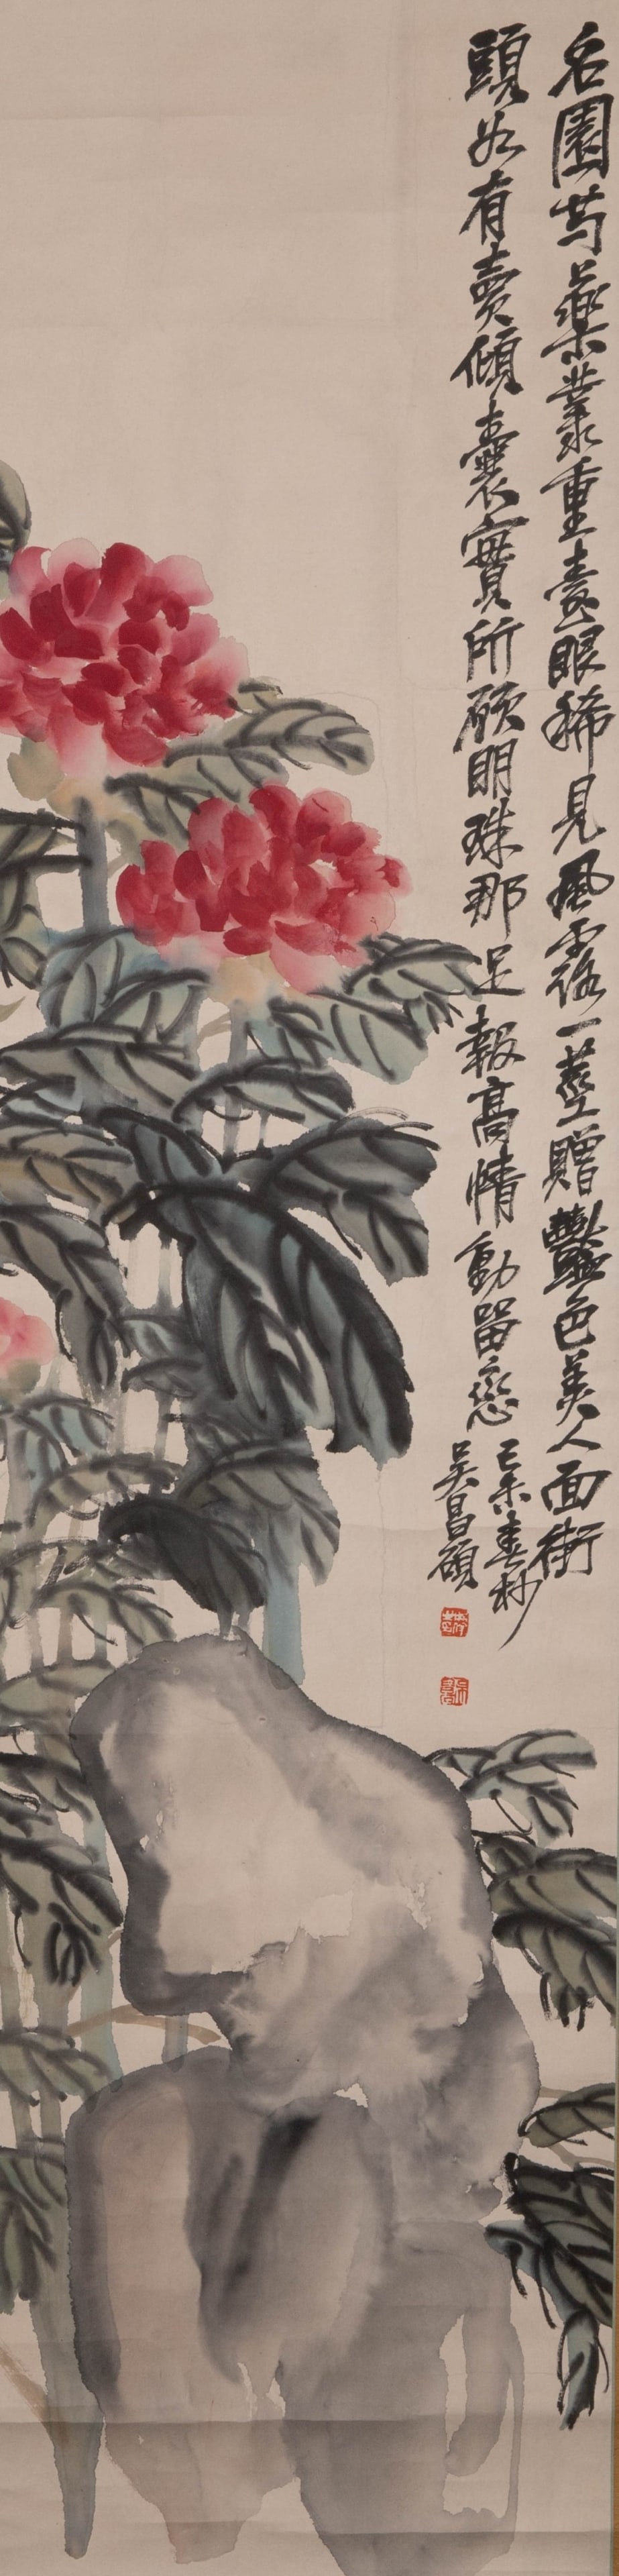 名園芍藥叢重臺眼稀見風露一莖贈豔色美人面街
頭如有賣傾囊實所願明珠那足報高情動留戀
己未春杪
吳昌碩